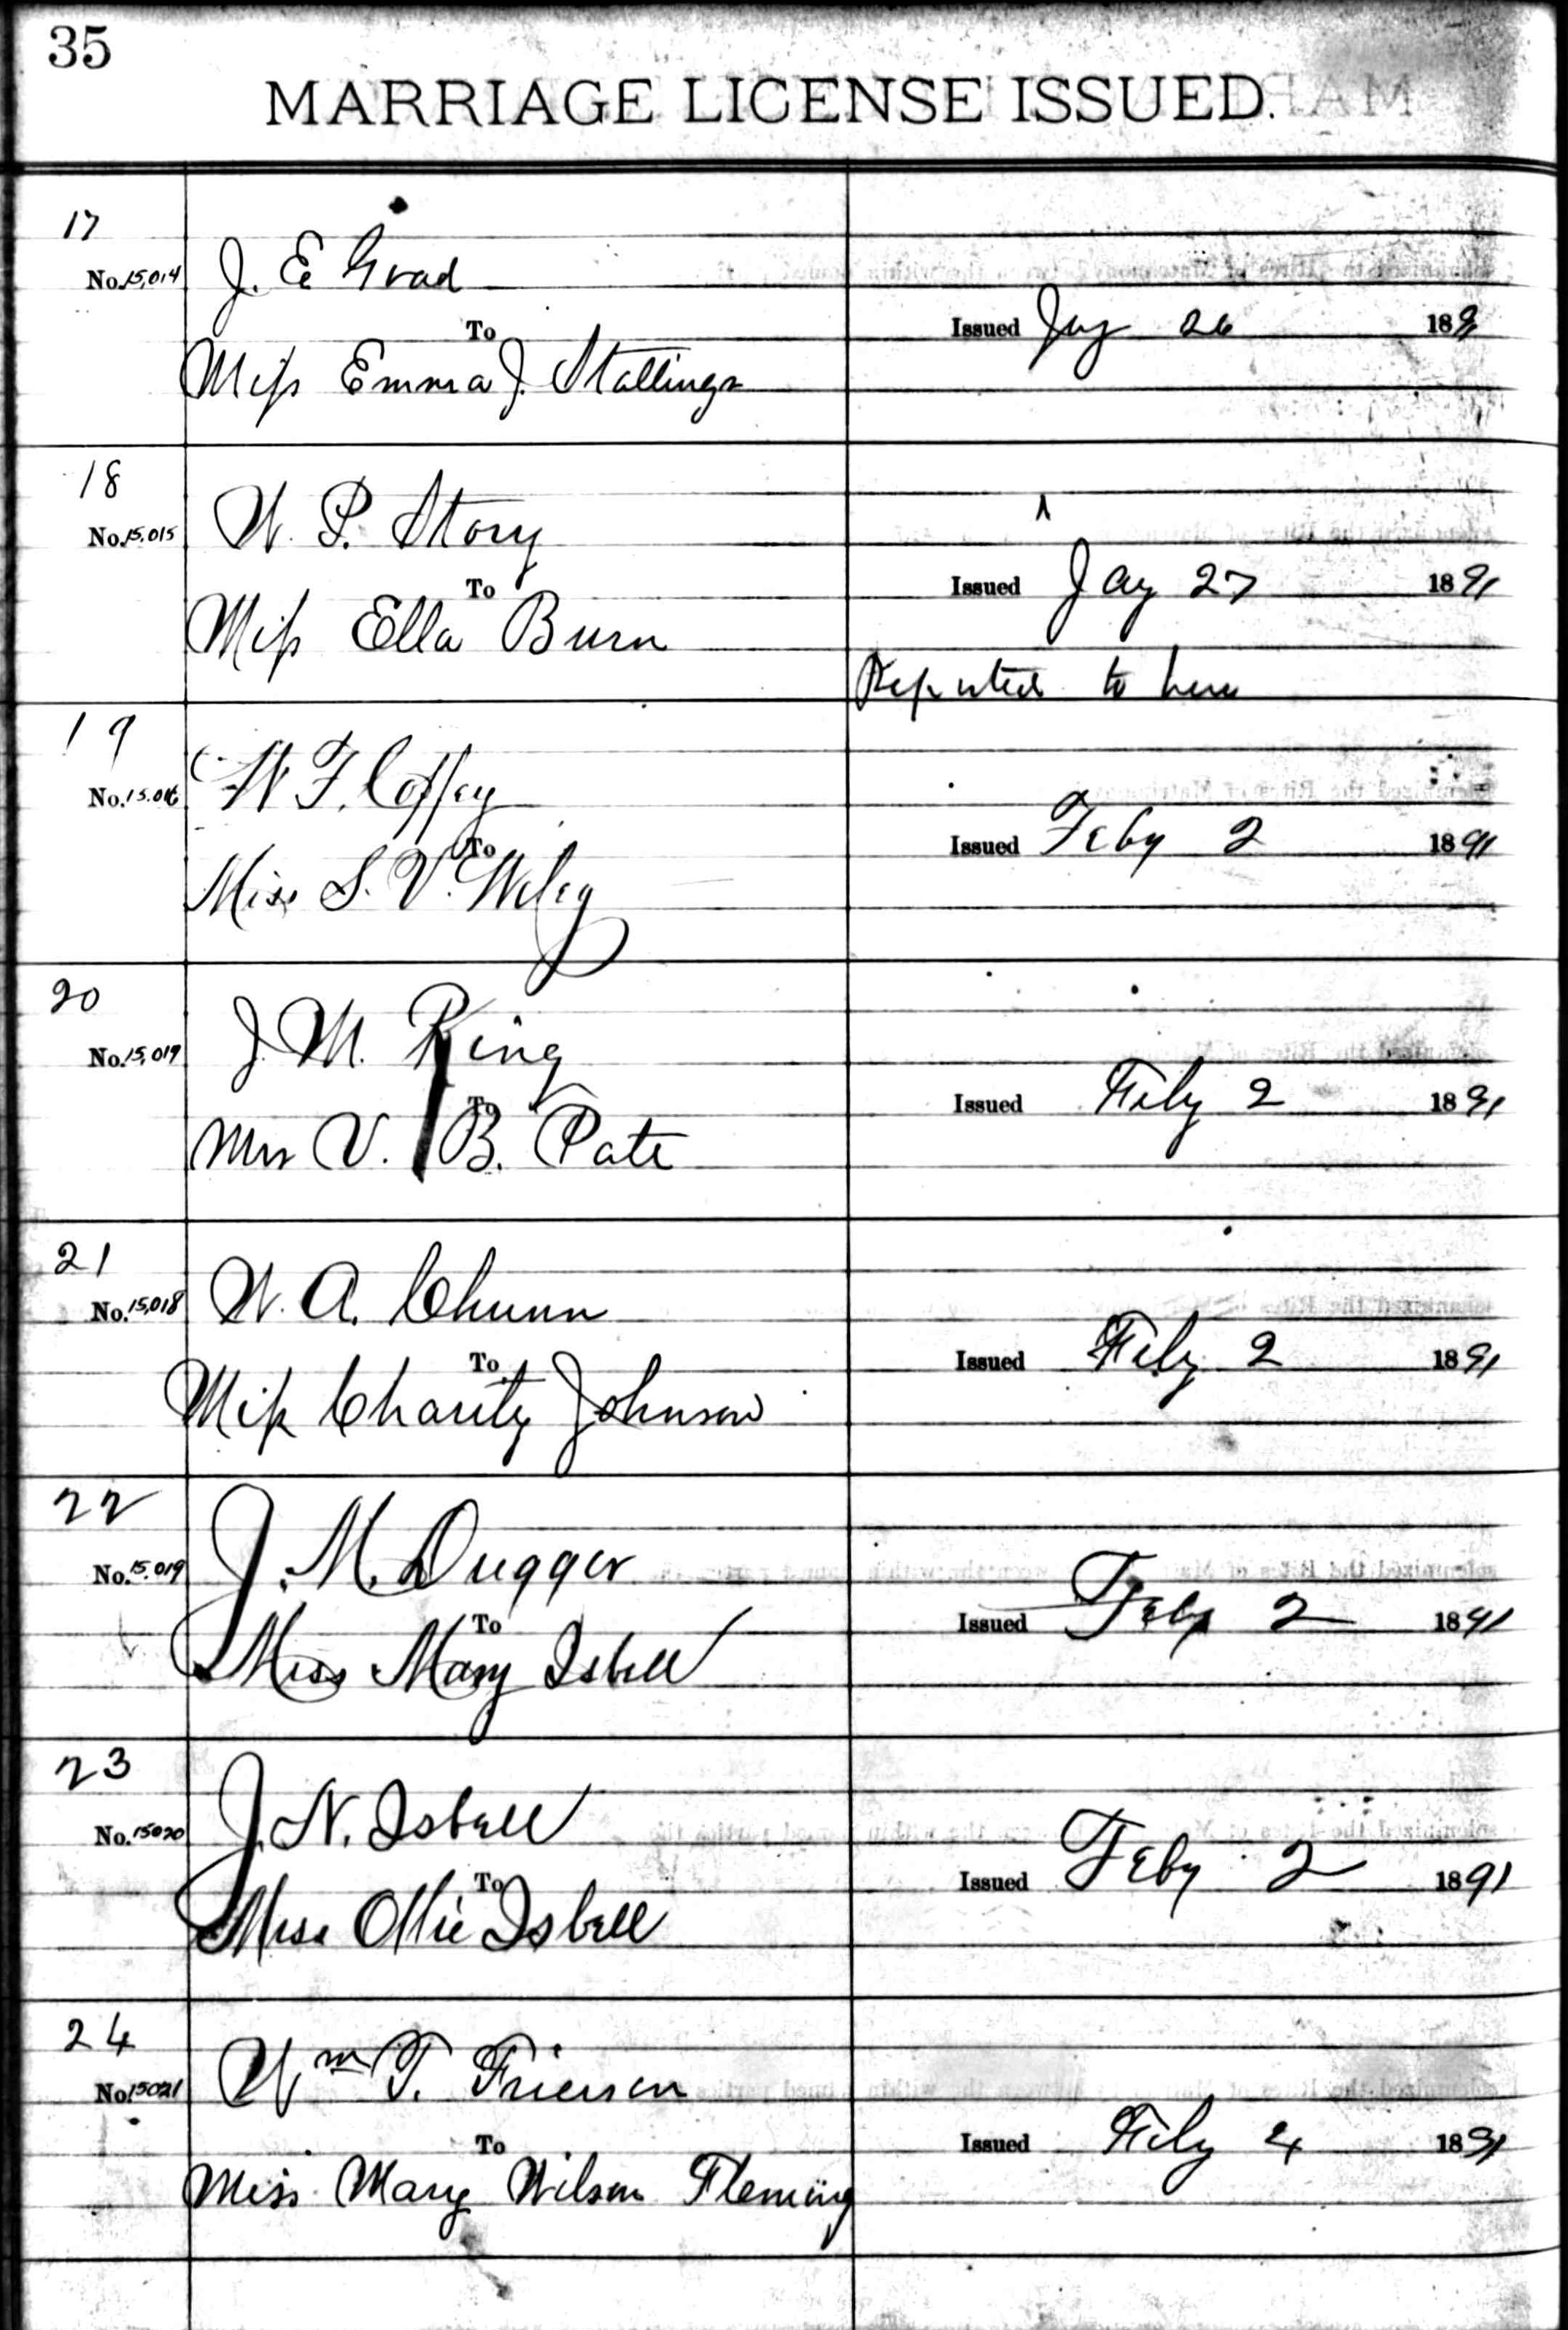 35
MARRIAGE LICENSE ISSUED.
17
No. 15,014 J. E. Grad
To
Issued Jay 26 1891
Miss Emma J. Stallings
18
No. 15,015 W. P. Story
To
Issued Jay 27 1891
Miss Ella Burn
Reported to here
19
No. 15.016 W. F. Coffey
To
Issued Feby 2 1891
Miss S. V. Wiley
20
No. 15,019 J. M. King
To
Issued Feby 2 1891
Mrs V. B. Pate
21
No. 15,018 W. A. Chunn
To
Issued Feby 2 1891
Miss Charity Johnson
22
No. 15.019 J. M. Dugger
To
Issued Feby 2 1891
Miss Mary Isbell
23
No. 15020 J. N. Isbell
To
Issued Feby 2 1891
Miss Ollie Isbell
24
No. 15021 Wm T. Frierson
To
Issued Feby 4 1891
Miss Mary Wilson Fleming